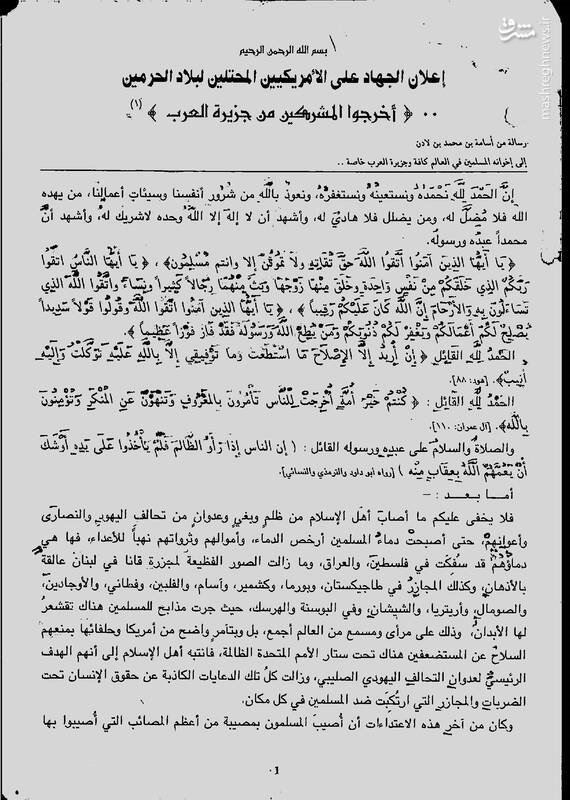 مشرق
mashreghnews.ir
بسم الله الرحمن الرحيم
إعلان الجهاد على الأمريكيين المحتلين لبلاد الحرمين
٠٠ ﴿ أخرجوا المشركين من جزيرة العرب ﴾ (١)
رسالة من أسامة بن محمد بن لادن
إلى إخوانه المسلمين في العالم كافة وجزيرة العرب خاصة ..
إنَّ الحَمْدَ لِلَّهِ نَحْمَدُهُ ونستعينُهُ ونستغفرُهُ، ونعوذُ باللَّهِ من شرُور أنفسنا وسيئاتِ أعمالِنا، من يهدِه
الله فلا مُضلَّ له، ومن يضلل فلا هاديَ له، وأشهد أن لا إله إلا اللهُ وحده لاشريك لهُ، وأشهد أنَّ
محمداً عبدُه ورسولُه.
﴿ يَا أيُّهَا الَّذِينَ آمَنُوا اتَّقُوا اللَّهَ حَقَّ تُقَاتِهِ ولَا تَمُوتُنَّ إلا وانتم مُسْلِمُون﴾، ﴿ يَا أيُّهَا النَّاسُ اتقُوا
رَبَّكُمُ الذي خَلَقَكُم مِنْ نَفْسٍ وَاحِدَةٍ وخَلَقَ مِنْهَا زَوْجَهَا وَبَثَّ مِنْهُمَا رِجَالاً كَثِيراً ونِسَاءً واتَّقُوا اللَّهَ الذي
تَسَاءلُونَ بِهِ والأرْحَامَ إنَّ اللهَ كَانَ عَلَيْكُمْ رَقِيباً ﴾ ، ﴿ يَا أيُّها الذِين آمَنُوا اتَّقُوا اللَّهَ وقُولُوا قَوْلاً سَدِيداً
يُصْلِحْ لَكُمْ أعْمَالَكُمْ ويَغْفِرْ لَكُمْ ذُنُوبَكُمْ ومَنْ يُطِعِ اللَّهَ وَرَسُولَهُ فَقَدْ فَازَ فَوْزاً عَظِيماً ﴾.
الحَمْدُ للَّهِ القائِل ﴿ إنْ أُرِيدُ إلَّا الإصْلَاحَ مَا اسْتَطَعْتُ ومَا تَوْفِيقِي إلاَّ بِاللَّهِ عَلَيْهِ تَوَكَّلْتُ وَإِلَيْهِ
أُنِيبُ﴾. [هود: ٨٨].
الحَمْدُ للَّهِ القَائِل : ﴿ كُنْتُمْ خَيْرَ أُمَّةٍ أُخْرِجَتْ لِلنَّاسِ تَأْمُرُونَ بِالمَعْرُوفِ وَتَنْهَوْنَ عَنِ المُنْكَرِ وَتُؤْمِنُونَ
بِاللَّه﴾. [آل عمران: ١١٠].
والصلاةُ والسلامُ على عبدِه ورسوله القائل : ( إن الناس إذا رَأَوُا الظَّالمَ فَلَمْ يَأْخُذُوا عَلَى يَدِهِ أَوْشَكَ
أَنْ يَعُمَّهُمُ اللَّهُ بِعِقَابٍ مِنْه ) [رواه ابو داود والترمذي والنسائي].
أمـا بـعـد : –
فلا يخفى عليكم ما أصابَ أهلَ الإسلام من ظلمٍ وبغيٍ وعدوانٍ من تحالفِ اليهودِ والنصارَى
وأعوانِهِمْ، حتى أصبحتْ دماءُ المسلمين أرخص الدماء، وأموالهم وثرواتهم نهباً للأعداء، فها هي
دماؤُهُمْ قد سُفِكَت في فلسطينَ، والعراق، وما زالت الصور الفظيعة لمجزرةِ قانا في لبنانَ عالقة
بالأذهانِ، وكذلك المجازرُ في طاجيكستان، وبورما، وكشمير، وآسام، والفلبين، وفطاني، والأوجادين،
والصومال، وأرتيريا، والشيشان، وفي البوسنة والهرسك، حيثُ جرت مذابح للمسلمين هناك تقشعرُ
لها الأبدانُ، وذلك على مرأى ومسمع من العالم أجمع، بل وبتآمرٍ واضح من أمريكا وحلفائِها بمنعِهِم
السلاحَ عن المستضعفين هناك تحت ستار الأمم المتحدة الظالمة، فانتبه أهل الإسلام إلى أنهم الهدف
الرئيسيُّ لعدوانِ التحالفِ اليهودي الصليبي، وزالت كلُّ تلك الدعايات الكاذبة عن حقوقِ الإنسان تحت
الضرباتِ والمجازرِ التي ارتُكِبَت ضد المسلمين في كل مكان.
وكان من آخرِ هذه الاعتداءاتِ أن أُصيبَ المسلمون بمصيبة من أعظم المصائب التي أُصيبوا بها
٠١